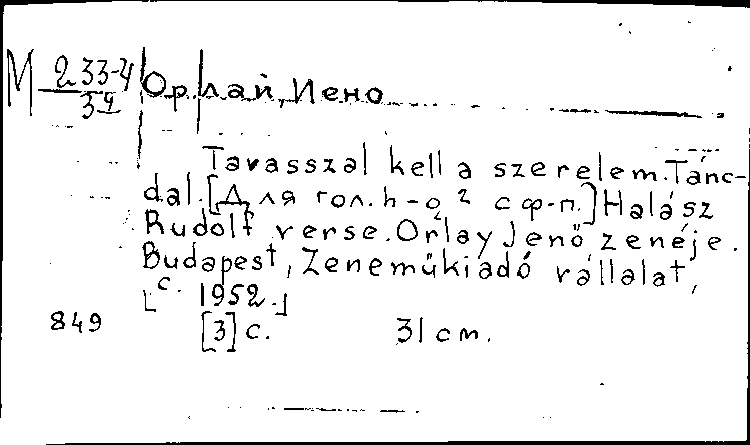 М 233-4
34
Орлай, Йено
Tavasszal kell a szerelem. Tánc-
dal. [Для гол. h-g² с ф-п.] Halász
Rudolf verse. Orlay Jenő zenéje.
Budapest, Zeneműkiadó vállalat,
[c. 1952.]
849 [3] с. 31 cm.